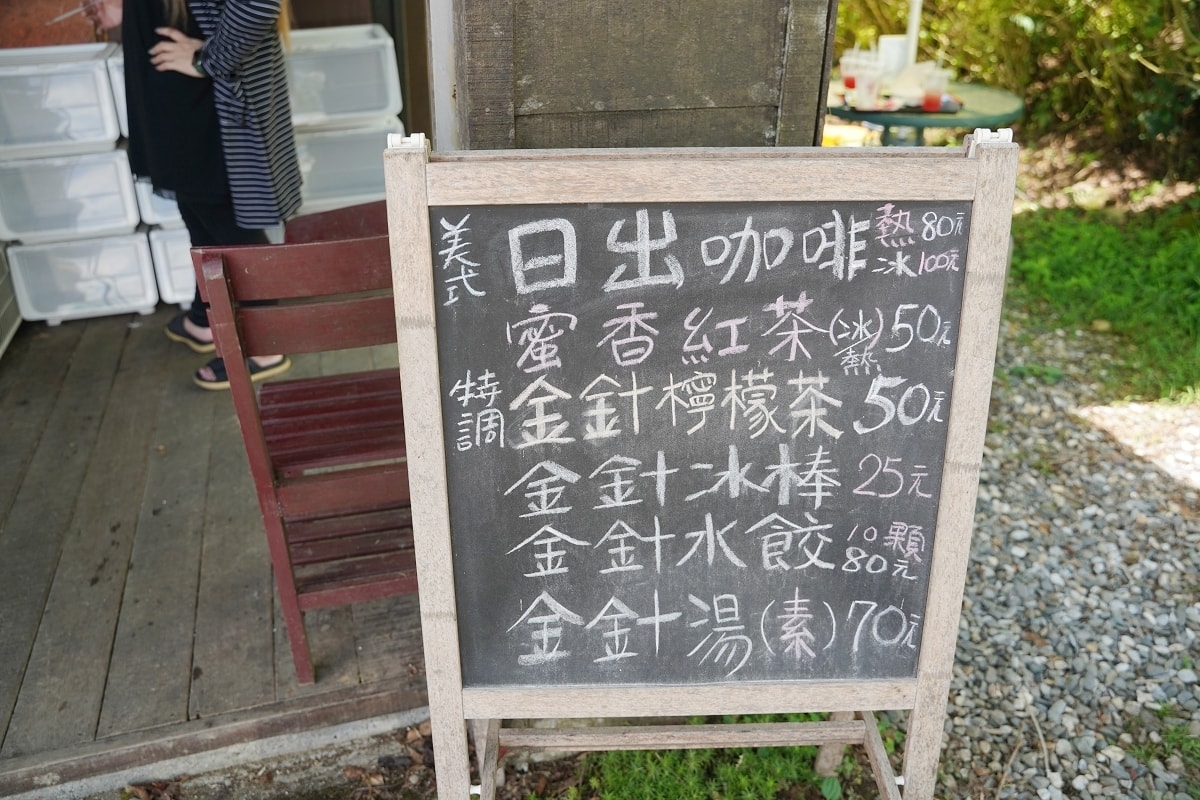 美式 日出咖啡 熱80元 冰100元
蜜香紅茶(冰熱)50元
特調 金針檸檬茶 50元
金針冰棒 25元
金針水餃 10顆 80元
金針湯(素)70元